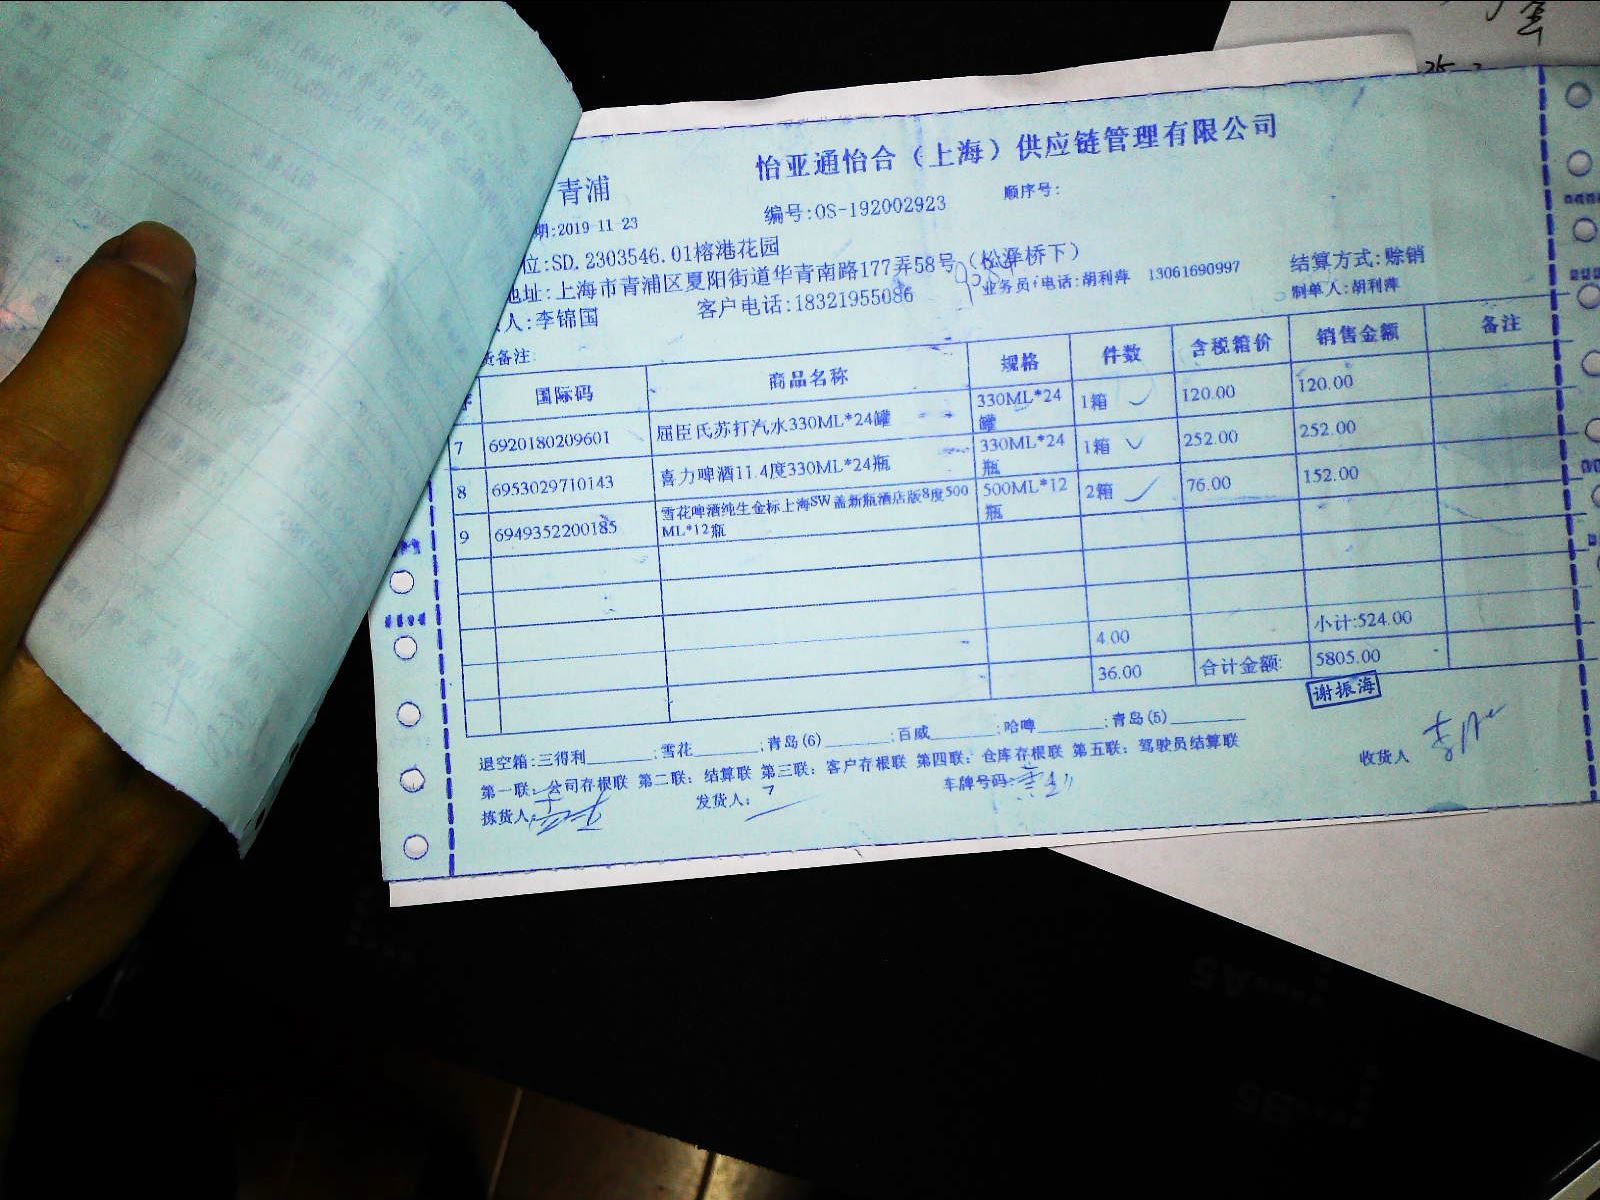 怡亚通怡合（上海）供应链管理有限公司
青浦
期:2019-11-23 编号:OS-192002923 顺序号:
位:SD.2303546.01榕港花园
地址:上海市青浦区夏阳街道华青南路177弄58号（松泽桥下） 业务员/电话:胡利萍 13061690997 结算方式:赊销
人:李锦国 客户电话:18321955086 制单人:胡利萍
货备注:
国际码 商品名称 规格 件数 含税箱价 销售金额 备注
7 6920180209601 屈臣氏苏打汽水330ML*24罐 330ML*24罐 1箱 120.00 120.00
8 6953029710143 喜力啤酒11.4度330ML*24瓶 330ML*24瓶 1箱 252.00 252.00
9 6949352200185 雪花啤酒纯生金标上海SW盖新瓶酒店版8度500ML*12瓶 500ML*12瓶 2箱 76.00 152.00
4.00 小计:524.00
36.00 合计金额: 5805.00
谢振海
退空箱:三得利______;雪花______;青岛(6)______;百威______;哈啤______;青岛(5)______
第一联：公司存根联 第二联：结算联 第三联：客户存根联 第四联：仓库存根联 第五联：驾驶员结算联
拣货人: 发货人: 车牌号码: 收货人